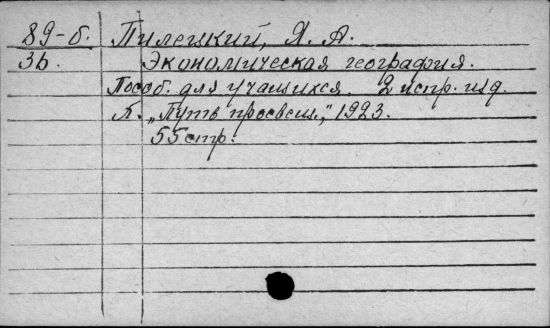 89-б. Пилецкий, Я. А.
3б. Экономическая география.
Пособ. для учащихся. 2 испр. изд.
П. „Путь просвещ.“, 1923.
55 стр.